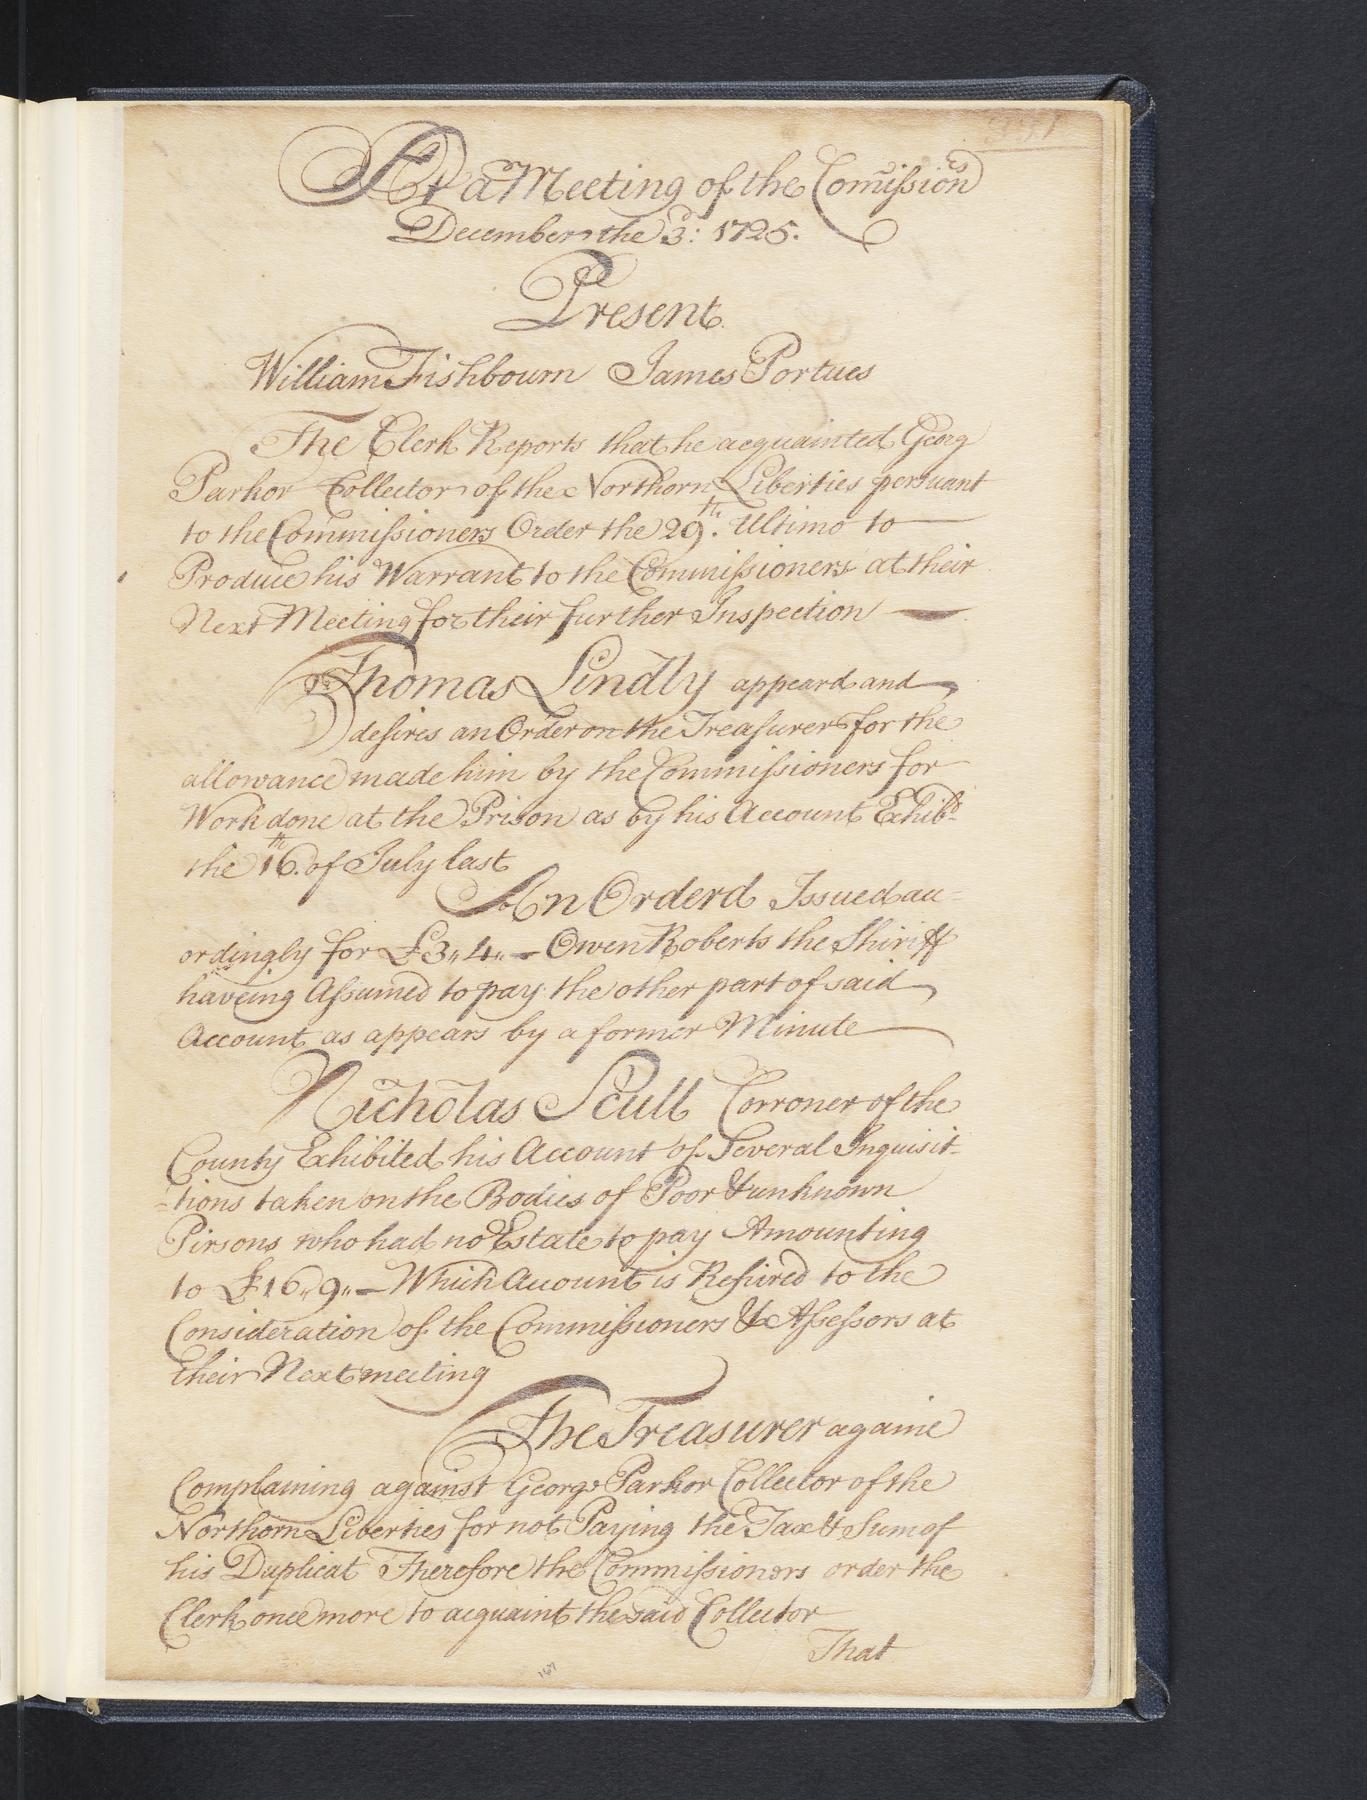 At a Meeting of the Comissionrs
December the 3: 1725.
Present
William Fishbourn James Portues
The Clerk Reports that he acquainted Georg
Parkor Collector of the Northorn Liberties persuant
to the Commissioners Order the 29th. Ultimo to
Produce his Warrant to the Commissioners at their
Next Meeting for their further Inspection
Thomas Lindly appeard and
desires an Order on the Treasurer for the
allowance made him by the Commissioners for
Work done at the Prison as by his Account Exhibd
the 16th. of July last
An Orderd Issued acc=
ordingly for £3"4"- Owen Roberts the Shiriff
haveing Assumed to pay the other part of said
Account as appears by a former Minute
Nicholas Scull Corroner of the
County Exhibited his Account of Several Inquisit=
=tions taken on the Bodies of Poor & unknown
Pirsons who had no Estate to pay Amounting
to £16"9"- Which Account is Refured to the
Consideration of the Commissioners & Assessors at
their Next meeting
The Treasurer againe
Complaining against George Parkor Collector of the
Northorn Liberties for not Paying the Tax & Sum of
his Duplicat Therefore the Commissionors order the
Clerk once more to acquaint the said Collector
That
167